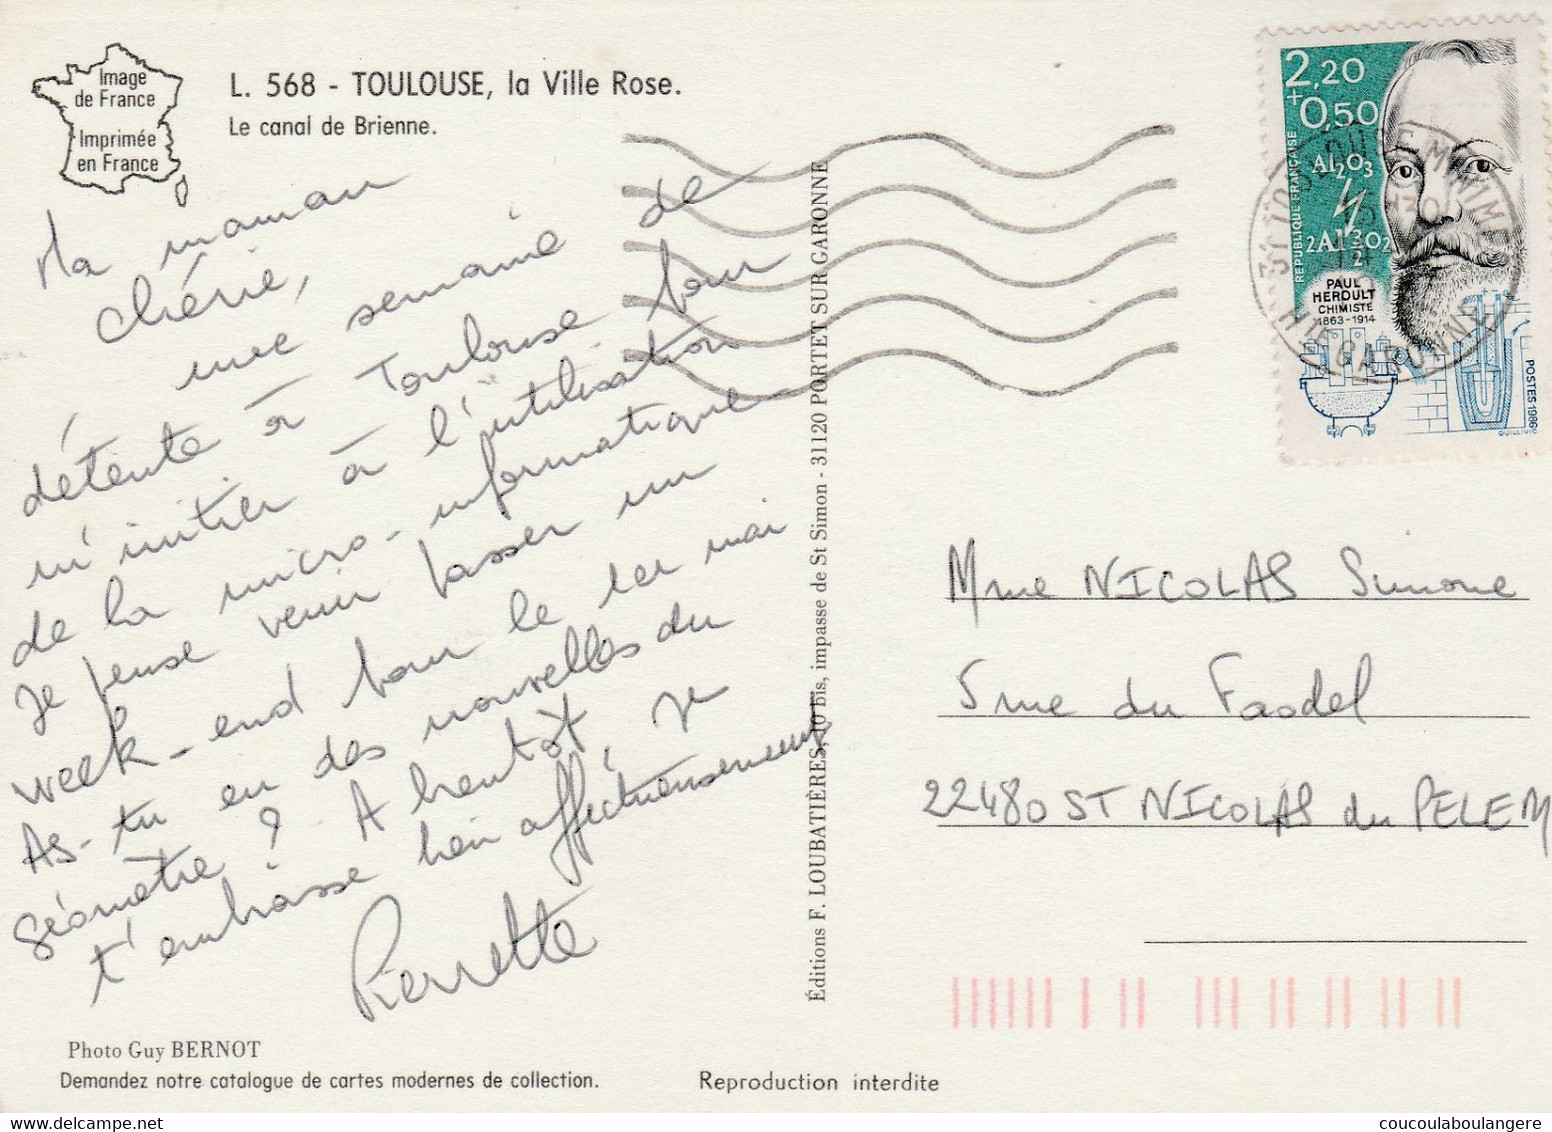 Image
de France
Imprimée
en France
L. 568 - TOULOUSE, la Ville Rose.
Le canal de Brienne.
Ma maman
chérie,
une semaine de
détente à Toulouse pour
m'initier à l'utilisation
de la micro-informatique
Je pense venir passer un
week-end pour le 1er mai
As-tu eu des nouvelles du
géomètre ? A bientôt, je
t'embrasse bien affectueusement
Pierrette
Photo Guy BERNOT
Demandez notre catalogue de cartes modernes de collection.
Reproduction interdite
Éditions F. LOUBATIÈRES, 10 bis, impasse de St Simon - 31120 PORTET SUR GARONNE
2,20
+0,50
RÉPUBLIQUE FRANÇAISE
Al2O3
2Al 3/2 O2
PAUL
HÉROULT
CHIMISTE
1863-1914
POSTES 1986
QUILLIVIC
31 TOULOUSE MINIMES
HTE GARONNE
Mme NICOLAS Simone
5 rue du Faodel
22480 ST NICOLAS du PELEM
coucoulaboulangere